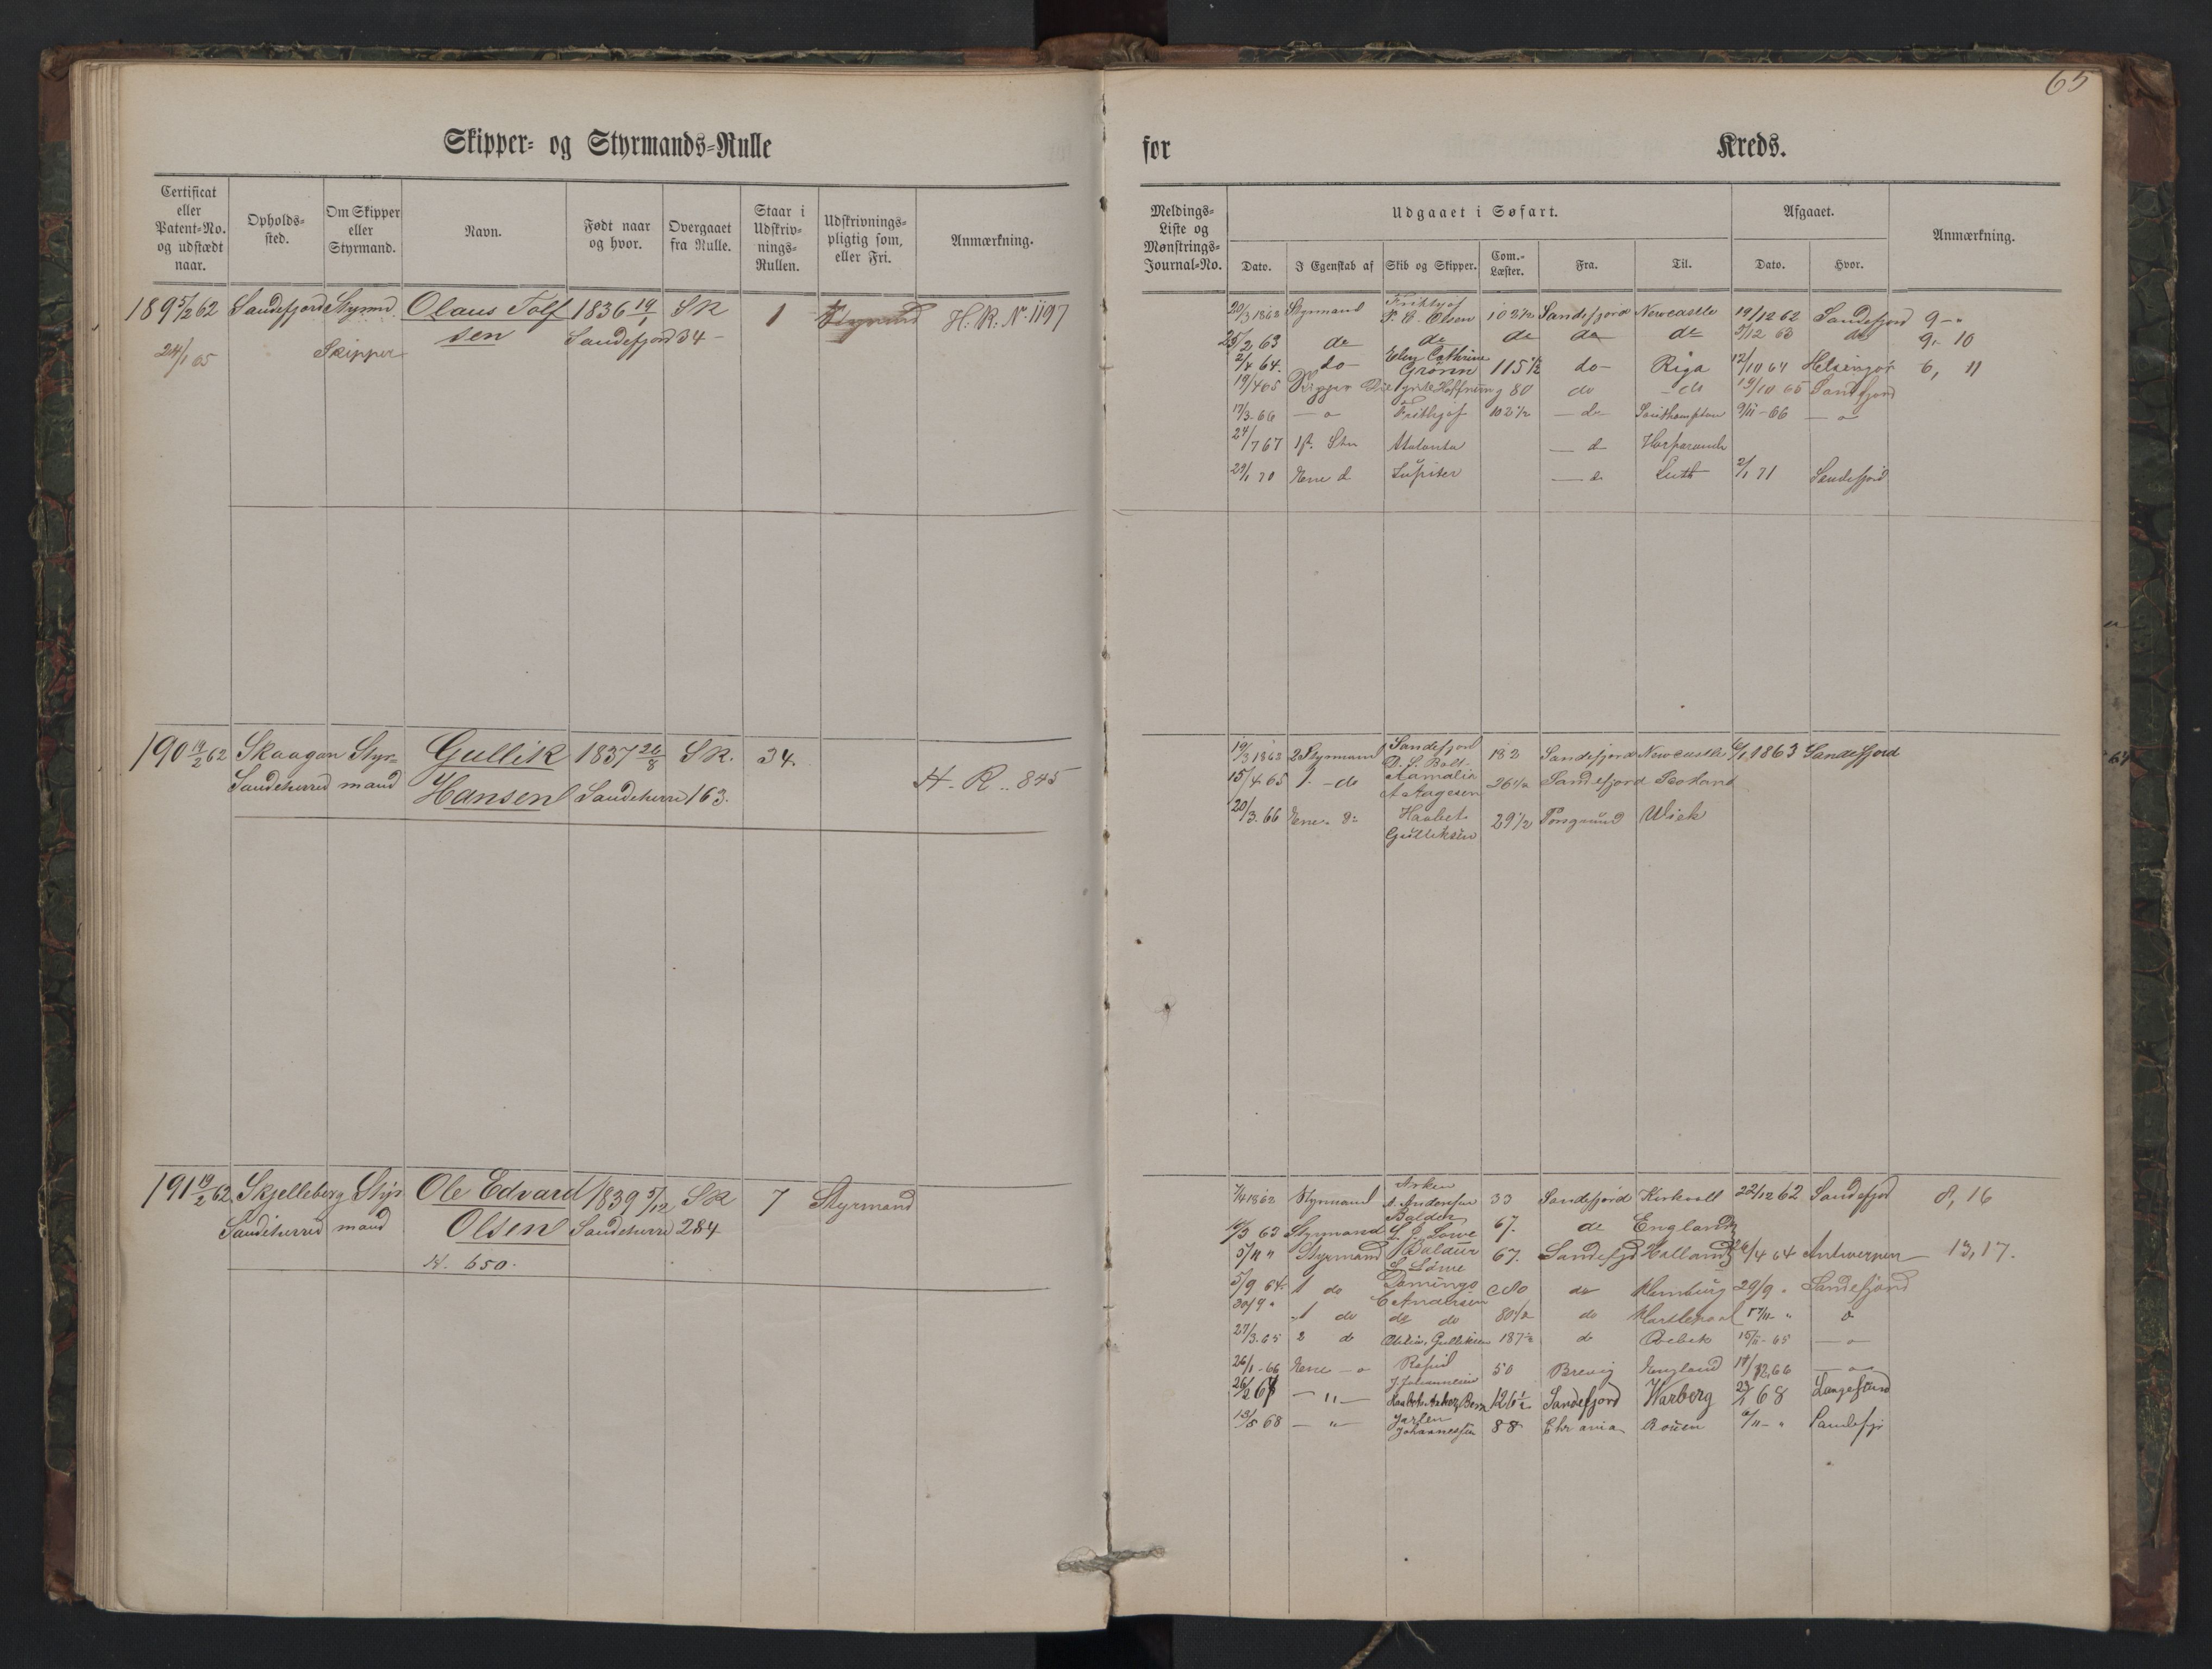 65
Skipper- og Styrmands-Rulle
for Kreds.
Certificat eller Patent-No. og udstædt naar.
Opholds-sted.
Om Skipper eller Styrmand.
Navn.
Født naar og hvor.
Overgaaet fra Rulle.
Staar i Udskriv-nings-Rullen.
Udskrivnings-pligtig som, eller Fri.
Anmærkning.
Meldings-Liste og Mønstrings-Journal-No.
Udgaaet i Søfart.
Dato.
I Egenskab af
Skib og Skipper.
Com.-Læster.
Fra.
Til.
Afgaaet.
Dato.
Hvor.
Anmærkning.
189 5/2 62 Sandefjord Styrmd. Olaus Tolf 1836 19/1 SR 1 Styrmd H. R. No 1197
24/1 65 Skipper sen Sandefjord 34 -
20/3 1862 Styrmand Frithjof P. C. Olsen 102 1/2 Sandefjord Newcastle 19/12 62 Sandefjord 9 - "
25/2 63 do do do do do 5/12 63 do 9, 10
2/4 64. do - Elen Cathrine Grønn 115 1/2 do - Riga 12/10 64 Helsingør 6, 11
19/4 65 Skipper Hoffnung 80 do - do 19/10 65 Sandefjord
17/3. 66 — o Frithjof 102 1/2 — do Southampton 9/11 - 66 — o
24/7 67 1st. Stm Atalanta — d Haparanda
29/1 70 Ene d Jupiter — d Leith 2/1 71 Sandefjord
190 19/2 62 Skaagan Styr= Gullik 1837 26/8 SR. 34.
Sandeherred mand Hansen Sandeherred 163. H. R. 845
19/3 1862 2 Styrmand Sandefjord 182 Sandefjord Newcastle 6/1 1863 Sandefjord
15/4 65 1. - do Aamalia A Aagesen 26 1/2 Sandefjord Skotland
20/3. 66 Ene. d: Haabet Gulliksen 29 1/2 Porsgrund Wick
191 19/2 62 Skjelleberg Styr Ole Edvard 1839 5/12 SR 7 Styrmand
Sandeherred mand Olsen Sandeherred 284
H. 650.
7/4 1862 Styrmand Arken A. Andersen 33 Sandefjord Kirkvall 22/12 62 Sandefjord 8, 16
10/3 63 Styrmand Balder L. J. Løwe 67. do England
5/11 " Styrmand Baldur L. Løwe 67. Sandefjd Holland 26/4 64 Antwerpen 13, 17.
5/9 64. 1 do Domingo C Andersen do Hamburg 29/9 " Sandefjord
30/9 " 1 do do do 80 1/2 do Hartlepool 17/11 - " o
27/3. 65 2 do Gulliksen 187 1/2 do 15/11 - 65 — o
26/1 - 66 Ene — o Rapid J. Johannesen 50 Brevig England 18/12 66 — o
26/2 67 — " — Haabets Anker, Bern 126 1/2 Sandefjord Warberg 23/1 68 Langesund
13/5 68 — " — Jarlen Johannessen 88 Chr ania Rouen 6/11 - " Sandefjr